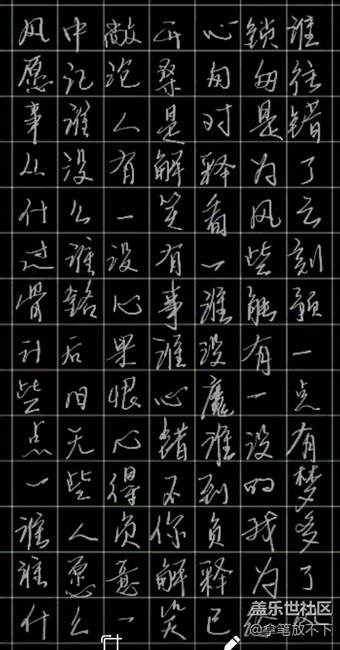 风中敞开心锁谁
愿记沧桑匆匆往
事谁人是对是错
从没有解释为了
什么一笑看风云
过谁没有一些刻
骨铭心事谁能预
计后果谁没有一
些旧恨心魔一点
点无心错谁没有
一些得不到的梦
谁人负你负我多
谁愿意解释为了
什么一笑已经
盖乐世社区
@拿笔放不下